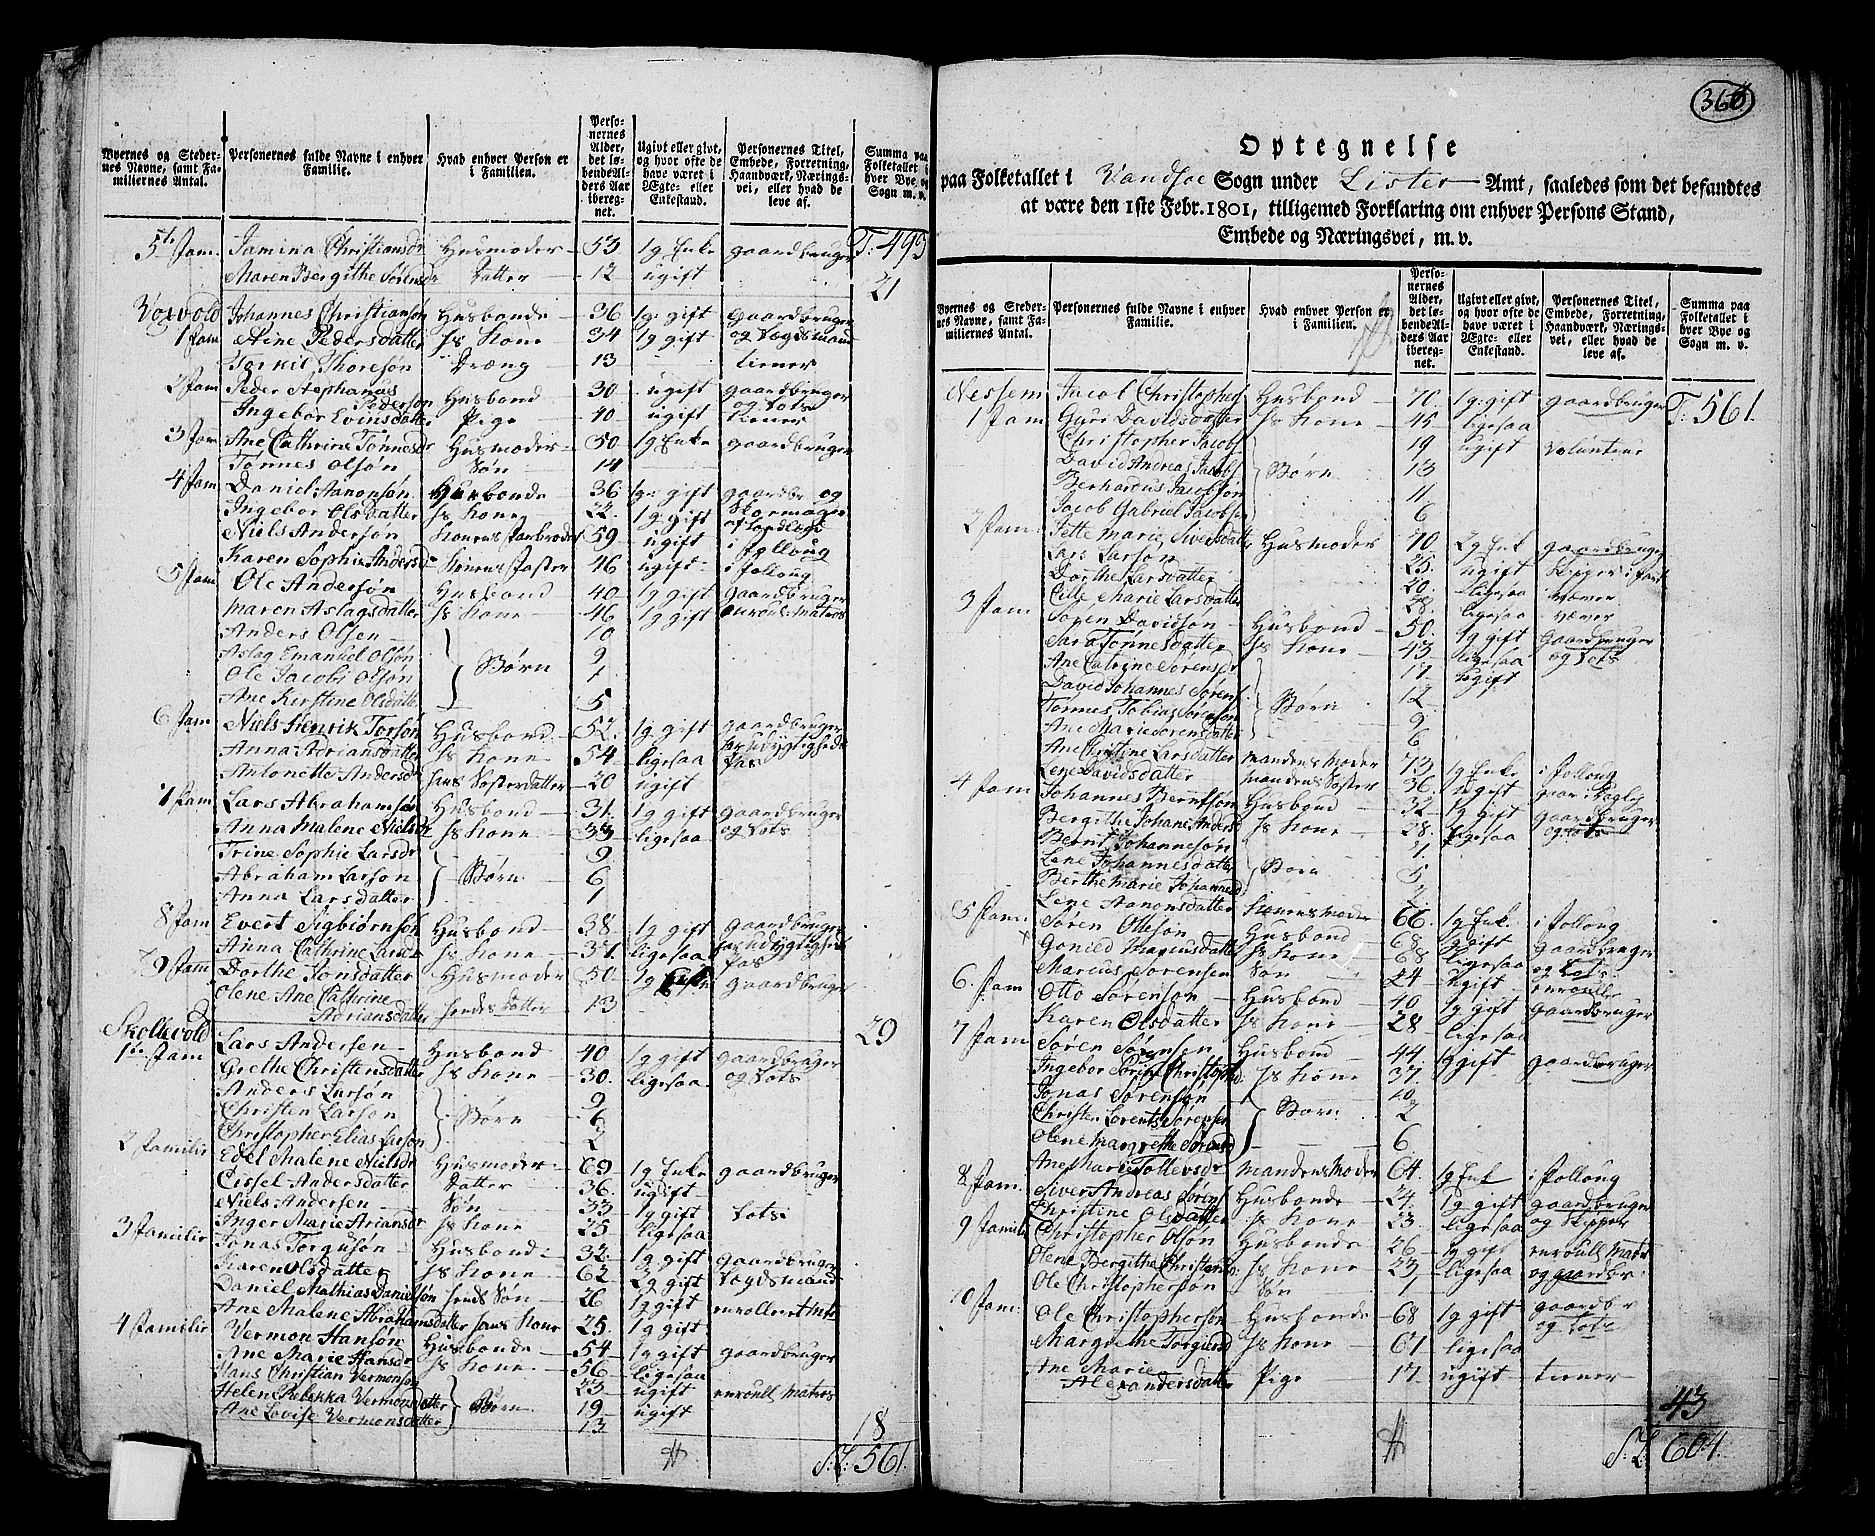 Byernes og Steder-
nes Navne, samt Fa-
miliernes Antal.
Personernes fulde Navne i enhver
Familie.
Hvad enhver Person er
i Familien.
Perso-
nernes
Alder,
det lø-
bende Al-
ders Aar
iberegnet.
Ugivt eller givt,
og hvor ofte de
have været i
Ægte- eller
Enkestand.
Personernes Titel,
Embede, Forretning,
Haandværk, Nærings-
vei, eller hvad de
leve af.
Summa paa
Folketallet i
hver Bye og
Sogn m. v.
5te Fam. Jamina Christiansdr Husmoder 53 1g Enke gaardbruger T: 493
Maren Bergithe Sørensdr Datter 12 ugift 21
Voxvold Johannes Christiansøn Husbonde 36 1g gift Gaardbruger
1 Fam Ane Pedersdatter hs Kone 34 1g gift og Vogdsmand
Torkil Thoresøn Dræng 13 tiener
2 Fam Peder Stephanus
Pederson Husbond 30 ugift gaardbruger og Lots
Ingebor Evinsdatter Pige 40 ugift tiener
3 Fam Ane Cathrine Tønnesdr Husmoder 50 1g Enke gaardbruger
Tønnes Olsøn Søn 14
4 Fam Daniel Aanonsøn Husbonde 36 1g gift gaardbr og
Ingebor Olsdatter hs Kone 22 1g gift Skomager
Niels Anderson Konens Farbroder 59 ugift
Karen Sophie Andersd Konens Faster 46 ugift i Folloug
5 Fam Ole Andersøn Husbond 40 1g gift Gaardbruger
Maren Aslagsdatter hs Kone 46 1g gift enroul: Matros
Anders Olsen 10
Aslag Emanuel Olsøn Børn 9
Ole Jacobi Olsøn 7
Ane Kirstine Olsdatter 5
6 Fam Niels Henrik Torsøn Husbond 52 1g gift gaardbruger
Anna Adriansdatter hs Kone 54 ligesaa for udygtigheds
Antonette Andersdr hans Søsterdatter 20 ugift Pas
7 Fam Lars Abrahamsøn Husbond 31 1g gift gaardbruger
Anna Malene Nielsdr hs Kone 33 ligesaa og Lots
Trine Sophie Larsdr 9
Abraham Larsøn Børn 6
Anna Larsdatter 1
8 Fam Evert Sigbiørnsøn Husbond 38 1g gift gaardbruger
Anna Cathrine Larsdr hs Kone 37 ligesaa for udygtigheds Pas
9 Fam Dorthe Jonsdatter Husmoder 50 gaardbruger
Olene Ane Cathrine
Adriansdatter hendes Datter 13
Skollevold Lars Andersen Husbond 40 1g gift gaardbruger 29
1te Fam Grethe Christensdatter hs Kone 30 ligesaa og Lots
Anders Larsøn 9
Christen Larsøn Børn 6
Christopher Elias Larsøn 2
2 Familie Edel Malene Nielsdr Husmoder 69 1g Enke gaardbruger
Cissel Andersdatter Datter 36 ugift
Niels Andersen Søn 33 1g gift Lots
Inger Marie Ariansdr hs Kone 25 ligesaa
3 Familie Jonas Torgusøn Husbond 32 1g gift gaardbruger
Karen Olsdatter hs Kone 62 2g gift Vogdsmand
Daniel Mathias Danielsøn hends Søn 26 1g gift enrolleret Mat
Ane Malene Abrahamsdatter hans Kone 25 1g gift
4 Familie Vermon Hansøn Husbonde 54 1g gift gaardbruger
Ane Marie Hansdr hs Kone 56 ligesaa
Hans Christian Vermonson 23 ugift enroull Matros
Helene Rebekka Vermonsdatter Børn 19 ugift
Ane Lovise Vermonsdatter 13
18
S:L: 561
366
Optegnelse
paa Folketallet i Vandsoe Sogn under Lister Amt, saaledes som det befandtes
at være den 1ste Febr. 1801, tilligemed Forklaring om enhver Persons Stand,
Embede og Næringsvei, m. v.
Byernes og Steder-
nes Navne, samt Fa-
miliernes Antal.
Personernes fulde Navne i enhver
Familie.
Hvad enhver Person er
i Familien.
Perso-
nernes
Alder,
det lø-
bende Al-
ders Aar
iberegnet.
Ugivt eller givt,
og hvor ofte de
have været i
Ægte- eller
Enkestand.
Personernes Titel,
Embede, Forretning,
Haandværk, Nærings-
vei, eller hvad de
leve af.
Summa paa
Folketallet i
hver Bye og
Sogn m. v.
Nessem Jacob Christophers Husbond 70 1g gift gaardbruger T: 561
1 Fam Guri Davidsdatter hs Kone 45 ligesaa
Christopher Jacobs 19 ugift Voluntene
David Andreas Jacobs Børn 13
Berhardus Jacobsøn 11
Jacob Gabriel Jacobsen 6
2 Fam Jette Marie Siversdatter Husmoder 70 2g Enk gaardbruger
Lars Larsøn 25 ugift
Dorthe Larsdatter 20 ligesaa væver
Cille Marie Larsdatter 28 ligesaa væver
3 Fam Søren Davidsøn Husbond 50 1g gift Gaardbruger
Sara Tønnesdatter hs Kone 43 ligesaa og Lots
Ane Catrine Sorensdr 17 ugift
David Johannes Sørens Børn 12
Tønnes Tobias Sørenson 9
Ane Marie Sorensdatter 6
Ane Christine Larsdatter Mandens Moder 73 1g Enke i Folloug
Lene Davidsdatter Mandens Søster 36 ugift
4 Fam Johannes Berntson Husbond 32 1g gift gaardbruger
Bergithe Johane Andersd hs Kone 28 ligesaa og Lots
Bernt Johannesøn 7
Lene Johannesdatter Børn 5
Berthe Marie Johannesd 2
Lene Aanonsdatter Konens Moder 66 1g Enke i Follough
5 Fam Søren Ottesøn Husbond 68 1g gift Gaardbruger
Gonild Magnusdatter hs Kone 68 ligesaa og Lots
Marcus Sorensen Søn 24 ugift enroull
6 Fam Otto Sørenson Husbond 40 1g gift Gaardbruger
Karen Olsdatter hs Kone 28 ligesaa
7 Fam Søren Sørensen Husbond 44 1g gift gaardbruger
Ingebor Christophd hs Kone 37
Jonas Sørenson 10
Christen Lorents Sørensen Børn 2
Olene Margrethe Sørensd 6
Ane Marie Tollevsdr Mandens Moder 64 1g Enk i Follough
8 Fam Siver Andreas Sørens Husbonde 24 1g gift gaardbruger
Christine Olsdatter hs Kone 23 ligesaa og Skipper
9 Familie Christopher Olsøn Husbonde 26 1g gift enroull Matr
Olene Bergithe Christensd hs Kone 23 ligesaa og gaardbr
Ole Christophersøn Søn 1
10 Fam: Ole Christophersøn Husbonde 68 1g gift gaardbr
Margrethe Torgiersd hs Kone 67 ligesaa og Lots
Ane Marie
Alexandersdatter Pige 17 ugift tiener
43
S:L: 604